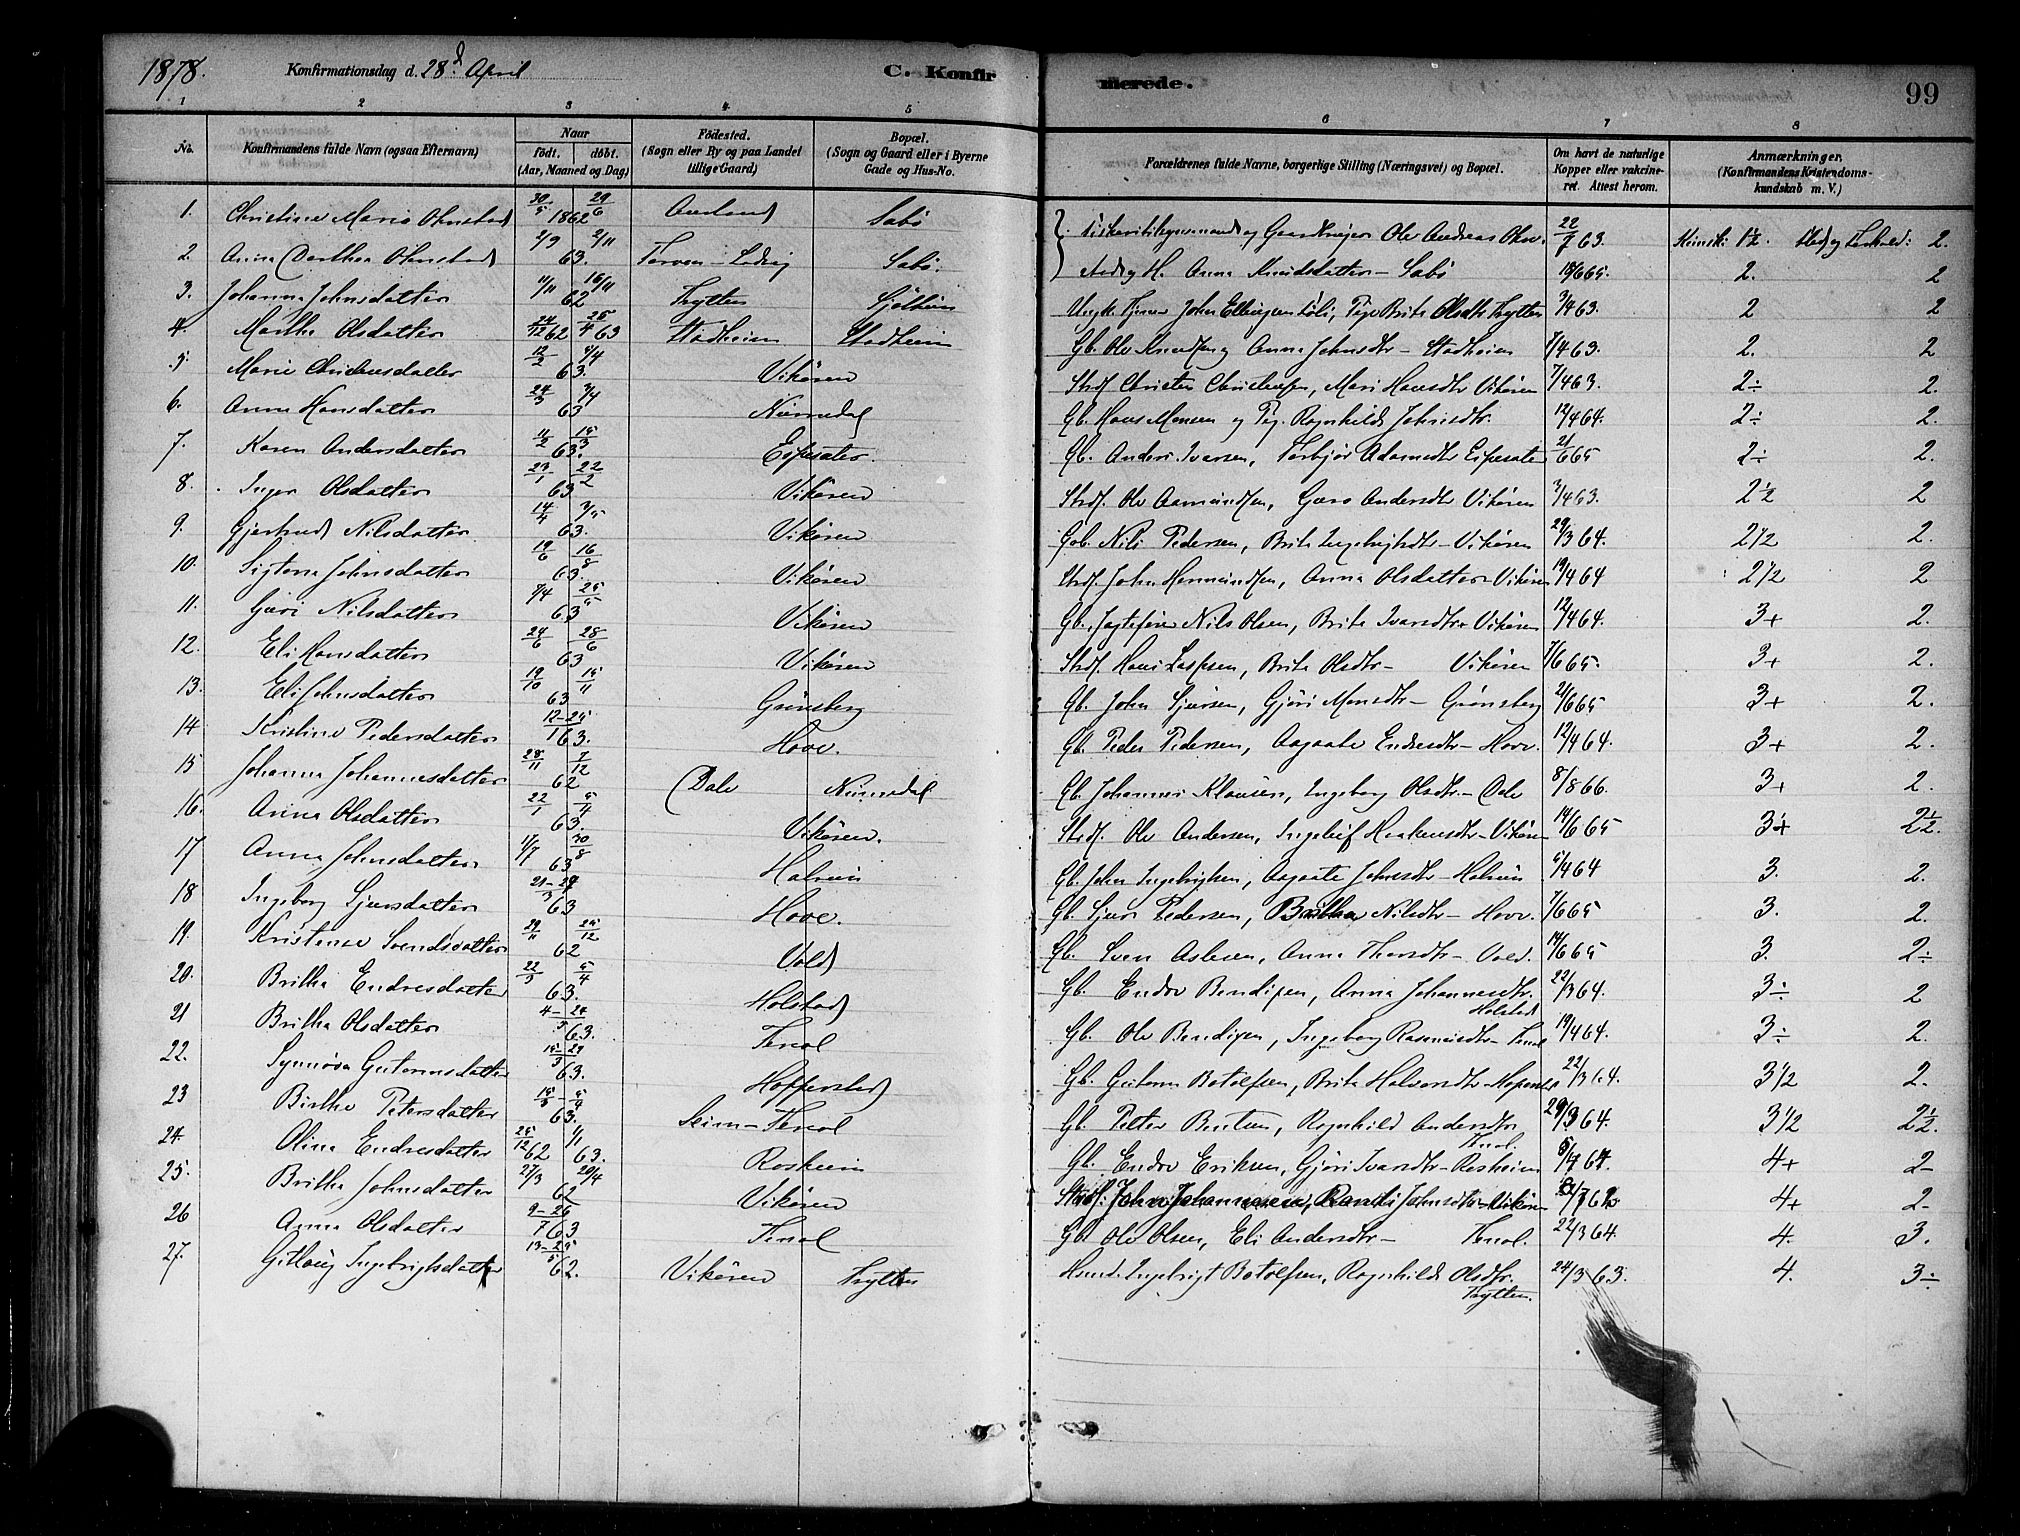 1878. Konfirmationsdag d. 28d April C. Konfirmerede. 99
1 2 3 4 5 6 7 8
No. Konfirmandens fulde Navn (ogsaa Efternavn) Naar født. døbt. (Aar, Maaned og Dag) Fødested. (Sogn eller By og paa Landet tillige Gaard) Bopæl. (Sogn og Gaard eller i Byerne Gade og Hus-No. Forældrenes fulde Navne, borgerlige Stilling (Næringsvei) og Bopæl. Om havt de naturlige Kopper eller vakcineret. Attest herom. Anmærkninger. (Konfirmandens Kristendomskundskab m. V.)
1. Christine Marie Ohnstad 30/5 1862 29/6 Aurland Sabø og Gaardbruger Ole Andreas Ohn. 22/7 63. 1½. 2.
2. Anna Dorthea Ohnstad 2/9 2/11 63. Sabø. Anna Knudsdatter - Sabø 18/6 65. 2. 2
3. Johanna Johnsdatter 11/11 16/11 62 Trytten Sjøtun Ungk. John Ellingsen Pige Brita Olsdtr Tryttn 3/4 63. 2 2
4. Martha Olsdatter 24/12 62 25/4 63 Stadheim Stadheim Gb. Ole Knudsen og Anna Johnsdtr - Stadheim 7/4 63. 2. 2
5. Marie Christensdatter 12/2 6/4 63. Vikøren Strds. Christen Christensen, Mari Hansdtr Vikøren 7/4 63. 2÷ 2.
6. Anna Hansdatter 24/3 3/4 63 Nummedal Gb. Hans Monsen og Pig. Ragnhild Johnsdtr. 12/4 64. 2÷ 2.
7. Karen Andersdatter 11/2 15/3 63. Espesæter. Gb. Anders Ivarsen, Torbjør Adamsdtr Espesæter 21/6 65 2÷ 2.
8. Inger Olsdatter 23/1 22/2 63 Vikøren Strds. Ole Aamundsen, Guro Andersdtr Vikøren 3/4 63. 2½ 2
9. Gjertrud Nilsdatter 14/4 3/5 63. Vikøren Gb. Nils Pedersen, Brita Ingebrigtsdtr - Vikøren 29/3 64. 2½ 2.
10. Sigtona Johnsdatter 19/6 16/8 63. Vikøren Strds. John Hermundsen, Anna Olsdatter Vikøren 19/4 64 2½ 2
11. Guri Nilsdatter 7/4 25/5 63 Vikøren Gb. Jagtefører Nils Olsen, Brita Ivarsdtr Vikøren 12/4 64. 3+ 2.
12. Eli Hansdatter 24/6 28/6 63 Vikøren Strds. Hans Lassesen, Brita Olsdtr - Vikøren 7/6 65. 3+ 2.
13. Eli Johnsdatter 19/10 15/11 63 Grønsberg Gb. John Sjursen, Gjøri Monsdtr - Grønsberg 21/6 65 3+ 2.
14 Kristine Pedersdatter 12-25/1 63. Hove. Gb. Peder Pedersen, Aagaate Endresdtr - Hove. 12/4 64. 3+ 2.
15 Johanna Johannesdatter 28/11 7/12 62 Dale Nummedal Gb. Johannes Klausen, Ingeborg Olsdtr. - Dale 8/8 66. 3+ 2.
16. Anna Olsdatter 22/1 5/4 63. Vikøren. Strds. Ole Andersen, Ingeleif Haakensdtr - Vikøren 14/6 65 3+ 2½.
17 Anna Johnsdatter 17/7 30/8 63 Halsein Gb. John Ingebrigtsen, Aagaate Johnsdtr - Halsein 5/4 64 3. 2.
18 Ingeborg Sjursdatter 21-29/3 63 Hove. Gb. Sjur Pedersen, Britha Nilsdtr - Hove. 7/6 65 3. 2.
19. Kristense Svendsdatter 29/11 25/12 62 Vold Gb. Sven Aslesen, Anna Thorsdtr - Vold. 14/6 65 3. 2÷
20. Britha Endresdatter 22/3 5/4 63. Holstad Gb. Endre Bendixen, Anna Johannesdtr. Holstad 22/3 64. 3÷ 2
21 Britha Olsdatter 4-24/5 63. Tenol Gb. Ole Bendixen, Ingeborg Rasmusdtr - Tenol 19/4 64. 3÷ 2.
22. Synnøva Guttormsdatter 15-29/3 63. Hopperstad Gb. Guttorm Botolfsen, Brita Halvorsdtr - Hopersta 22/3 64. 3½ 2.
23 Birthe Petersdatter 15/3 - 5/4 63. Seim - Tenol Gb. Petter Bentsen, Ragnhild Andersdtr Tenol. 29/3 64. 3½ 2½.
24. Olina Endresdatter 25/12 62 1/11 63. Rosheim Gb. Endre Eriksen, Gjøri Ivarsdtr - Rosheim 5/7 64. 4+ 2-
25. Britha Johnsdatter 27/3 20/4 62 Vikøren Strds. John Johannesen, Randi Johnsdtr - Vikøren 4+ 2-
26 Anna Olsdatter 9-26/7 63 Tenol Gb. Ole Olsen, Eli Andersdtr - Tenol. 22/3 64. 4. 3.
27. Gitlaug Ingebrigtsdatter 13-25/5 62. Vikøren Tryttn Husmd. Ingebrigt Botolfsen, Ragnhild Olsdtr. Trytten. 24/3 63. 4. 3÷